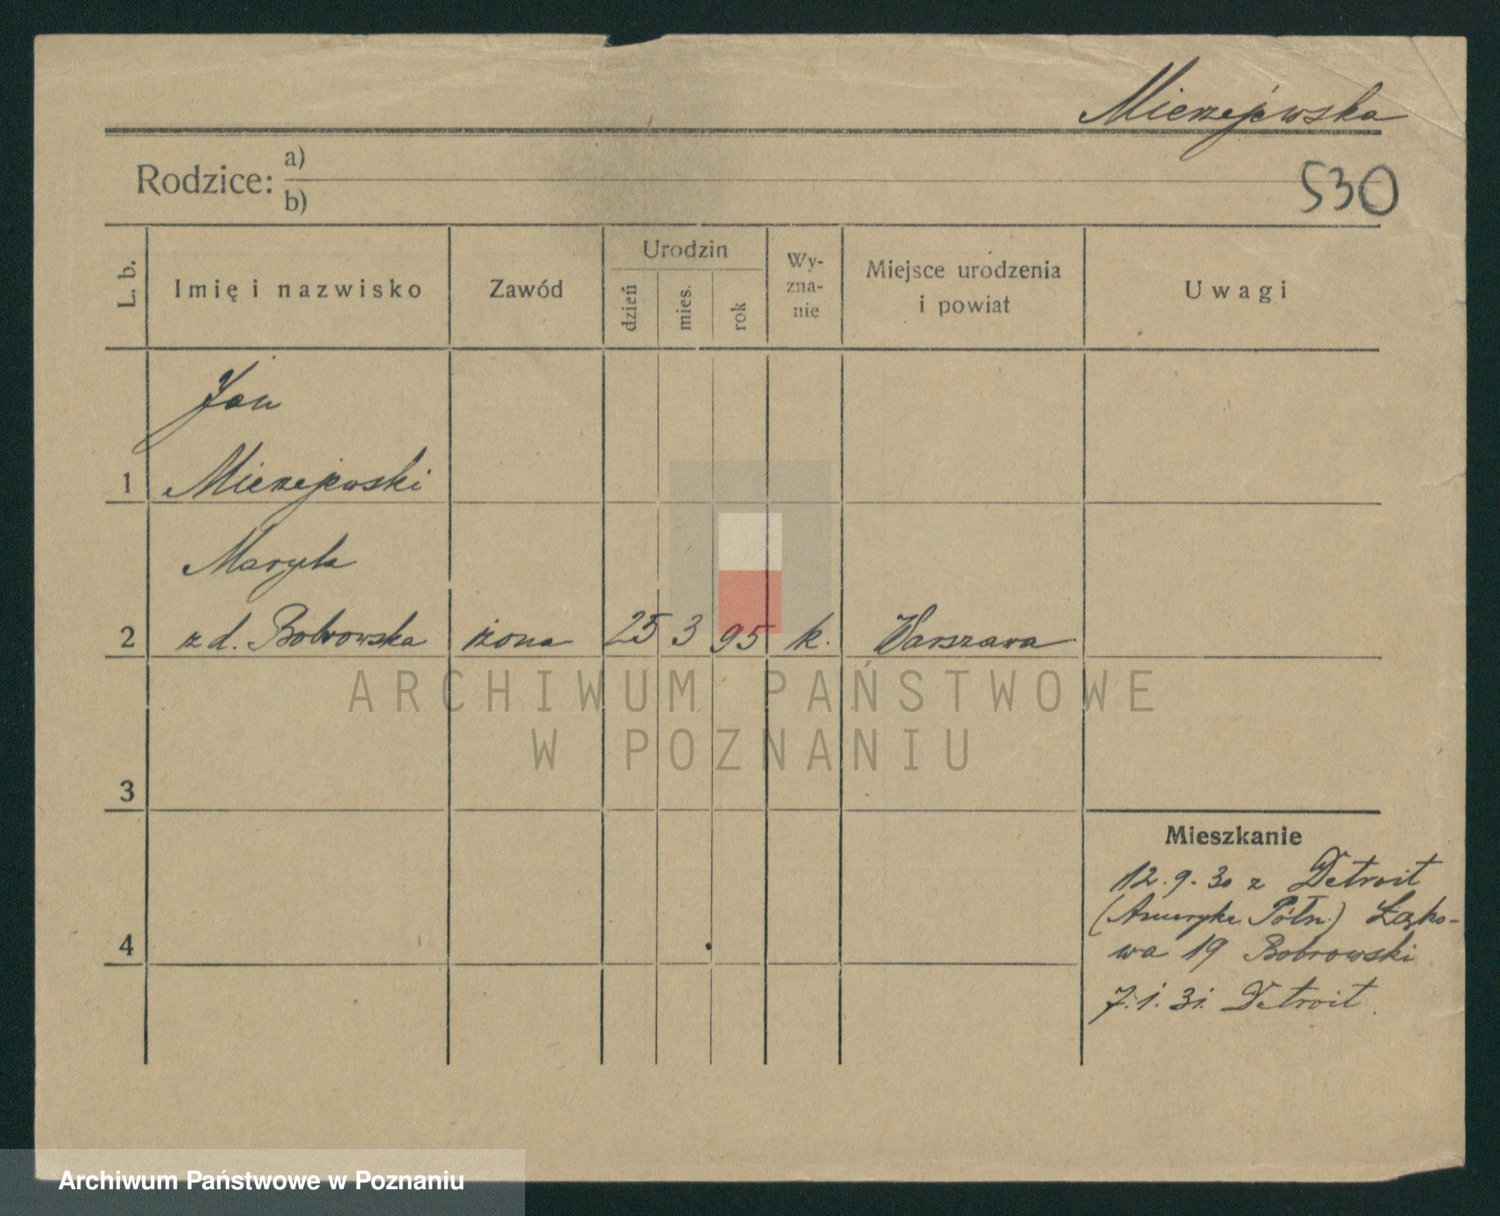 Mierzejewska
Rodzice: a)
b)
530
L. b.
Imię i nazwisko
Zawód
Urodzin
dzień
mies.
rok
Wy-
zna-
nie
Miejsce urodzenia
i powiat
Uwagi
Jan
1 Mierzejewski
Maryla
2 z d. Bobrowska żona 25 3 95 k. Warszawa
ARCHIWUM PAŃSTWOWE
W POZNANIU
3
Mieszkanie
12.9.30 z Detroit
(Ameryka Półn.) Łąko-
4
wa 19 Bobrowski
7.1.31. Detroit.
Archiwum Państwowe w Poznaniu